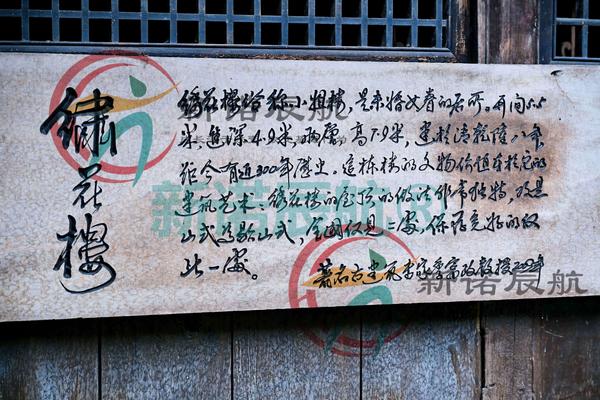 繡花樓
绣花楼俗称小姐楼,是未婚女眷的居所。开间5.5
米,进深4.9米,两层高7.9米,建于清乾隆八年,
距今有近300年历史。这栋楼的文物价值在于它的
建筑艺术:绣花楼的屋顶的做法非常独特,
山式为歇山式,全国仅见二处,保存完好的仅
此一处。
著名古建筑专家季富政教授
新诺辰航
新诺辰航
新诺辰航